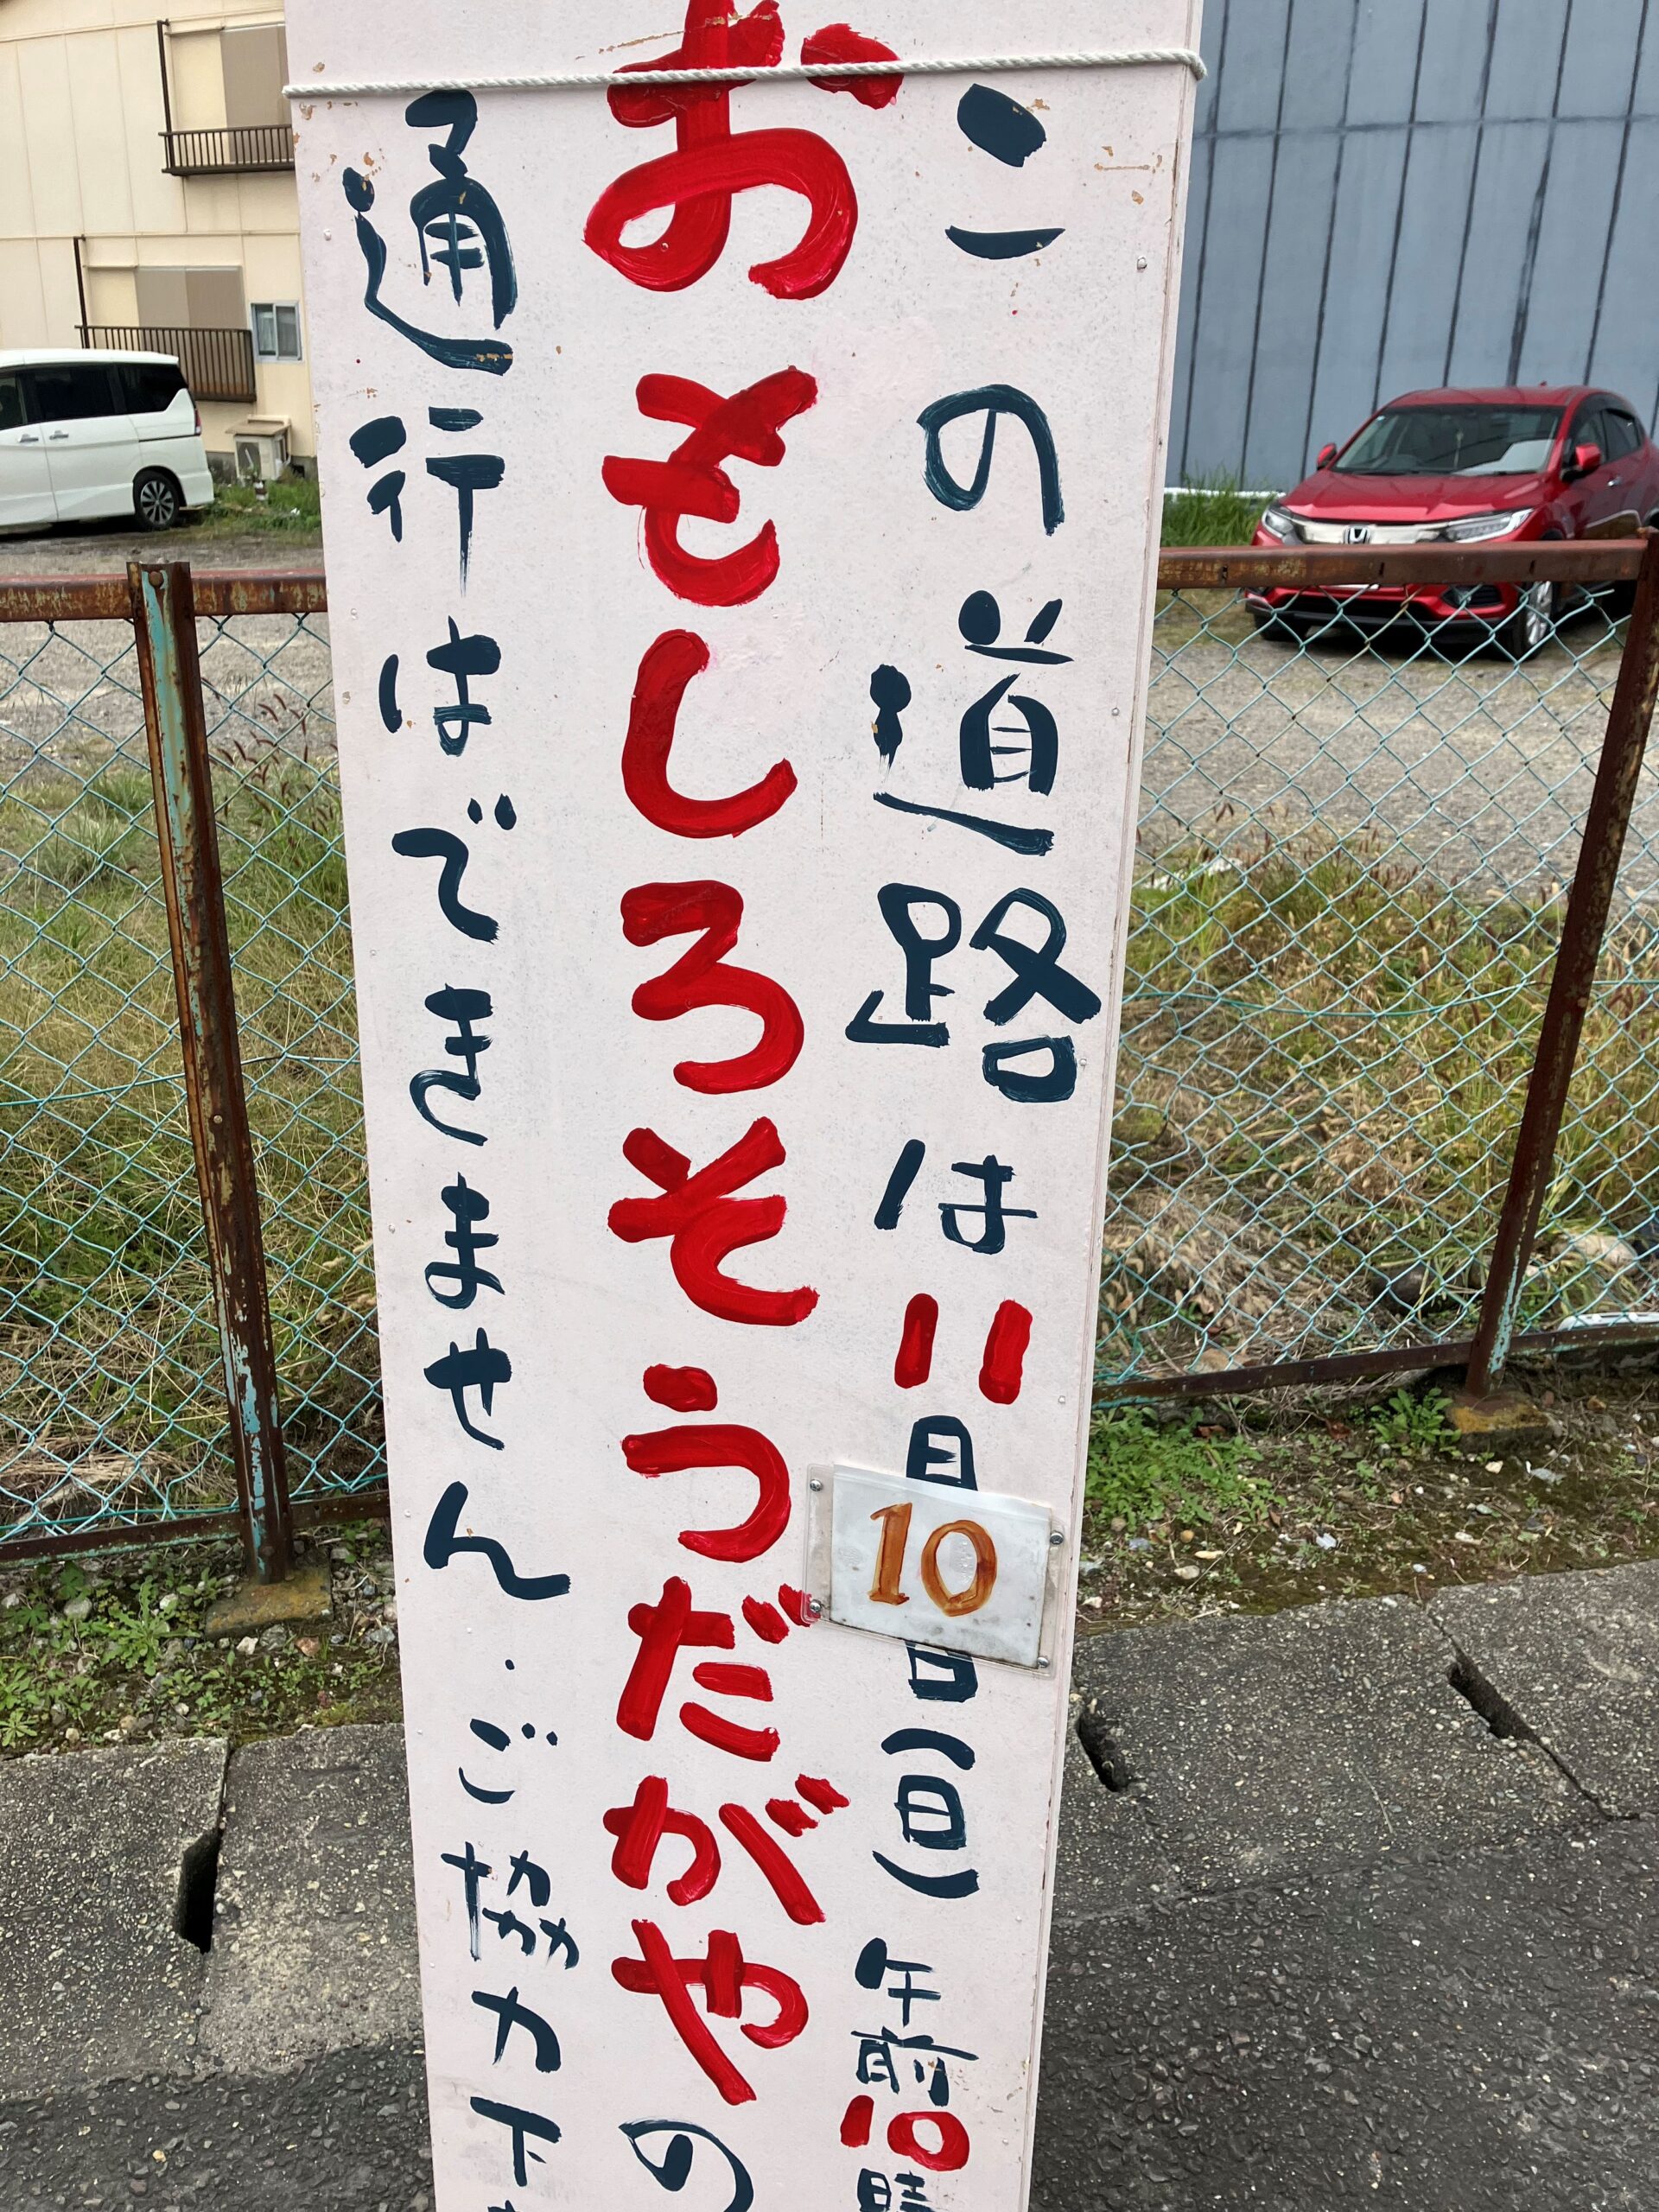 この道路は11月10日(日)午前10時
おもしろそうだがやの
通行はできません.ご協力下